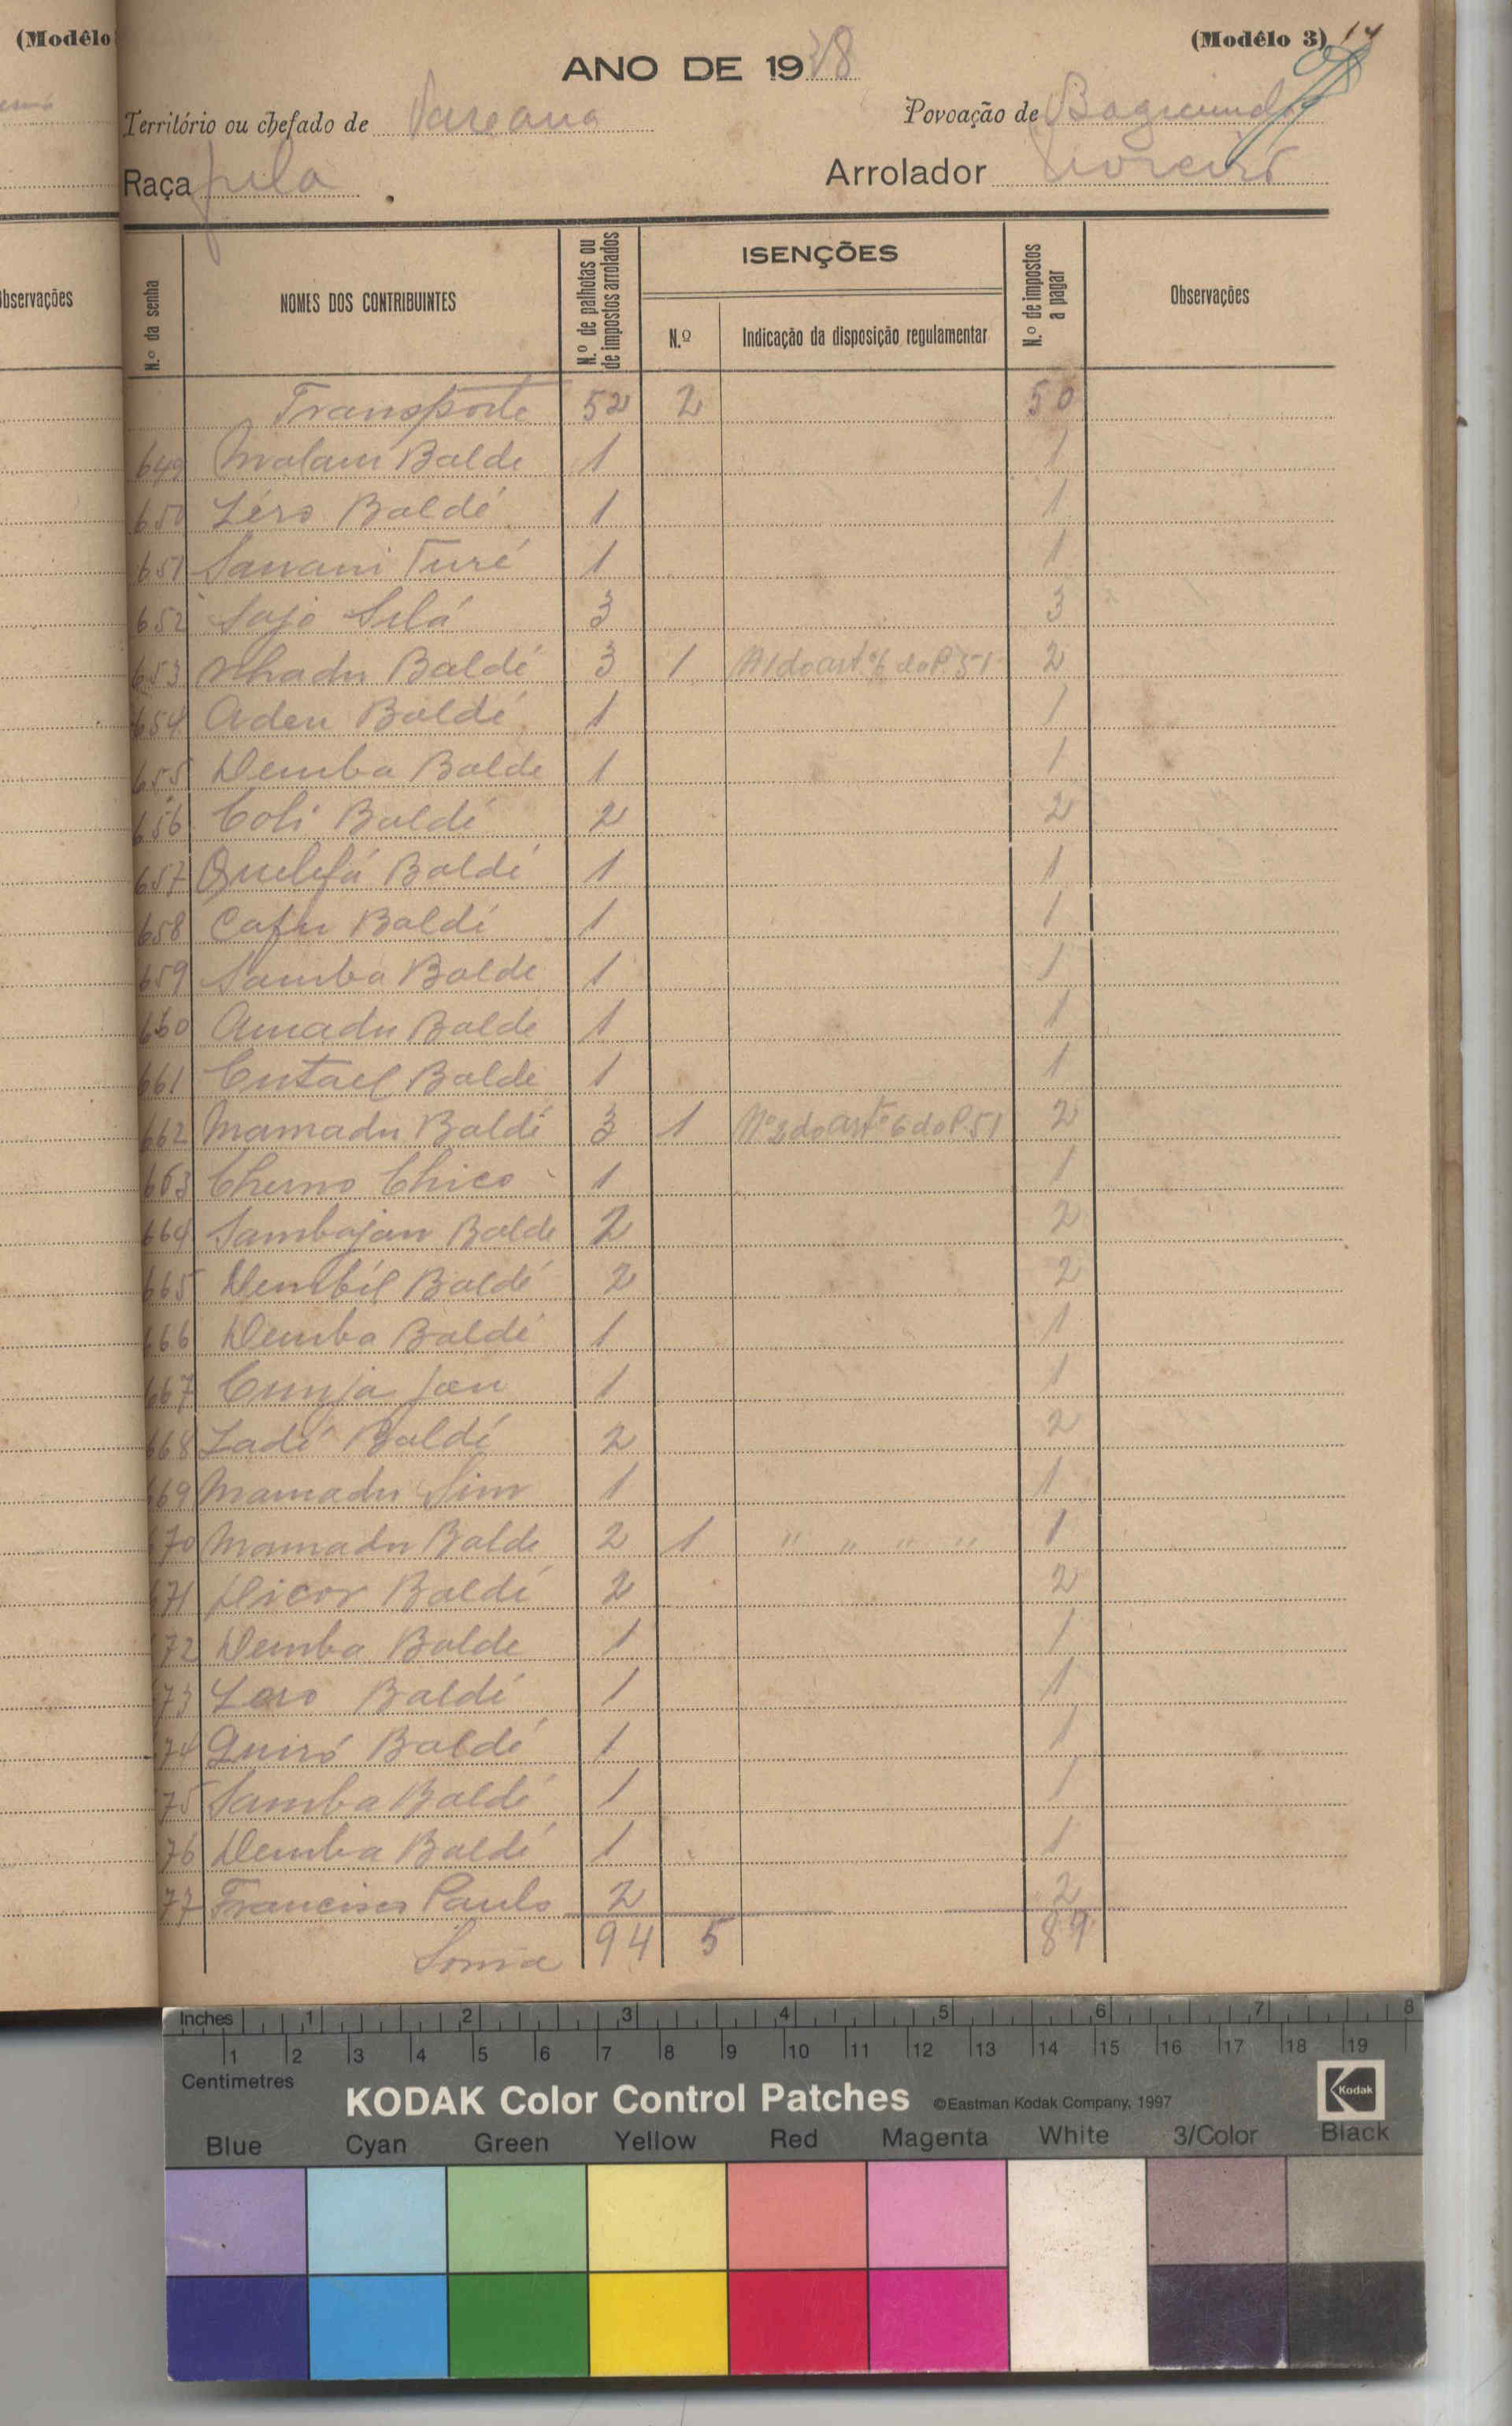 (Modêlo
(Modêlo 3) 14
ANO DE 1938
Território ou chefado de
Povoação de
Raça fula
Arrolador
bservações
N.º da senha
NOMES DOS CONTRIBUINTES
N.º de palhotas ou de impostos arrolados
ISENÇÕES
N.º
Indicação da disposição regulamentar
N.º de impostos a pagar
Observações
Transporte 52 2 50
649 Malam Balde 1 1
650 Léro Baldé 1 1
651 Sanani Turé 1 1
652 Sajo Silá 3 3
653 Baldé 3 1 N 1 do artº 6 do P. 51 2
654 Aden Baldé 1 1
655 Demba Balde 1 1
656 Coli Baldé 2 2
657 Quelefá Baldé 1 1
658 Cafu Baldé 1 1
659 Samba Balde 1 1
660 Amadu Balde 1 1
661 Cutael Balde 1 1
662 Mamadu Baldé 3 1 Nº 2 do artº 6 do P. 51 2
663 Cherno Chico 1 1
664 Sambajan Balde 2 2
665 Dembél Baldé 2 2
666 Demba Baldé 1 1
667 Cunja Jau 1 1
668 Ladé Baldé 2 2
669 Mamadu 1 1
70 Mamadu Balde 2 1 " " " " 1
71 Dicor Baldé 2 2
72 Demba Balde 1 1
73 Lero Baldé 1 1
74 Quiró Baldé 1 1
75 Samba Baldé 1 1
76 Demba Baldé 1 1
77 Francisco Paulo 2 2
Soma 94 5 89
Inches 1 2 3 4 5 6 7 8
1 2 3 4 5 6 7 8 9 10 11 12 13 14 15 16 17 18 19
Centimetres
KODAK Color Control Patches ©Eastman Kodak Company, 1997 Kodak
Blue Cyan Green Yellow Red Magenta White 3/Color Black